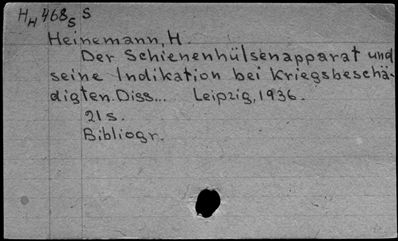 HH 468s S
Heinemann, H.
Der Schienenhülsenapparat und
seine Indikation bei Kriegsbeschä-
digten. Diss... Leipzig, 1936.
21 s.
Bibliogr.